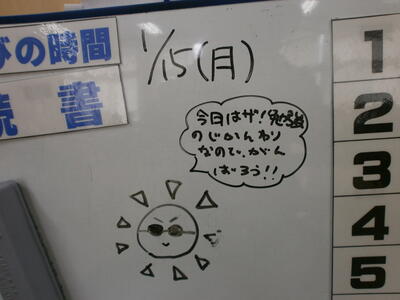 びの時間
読書
1/15(月)
今日はザ!勉強
のじかんわり
なので、がん
ばろう!!
1
2
3
4
5